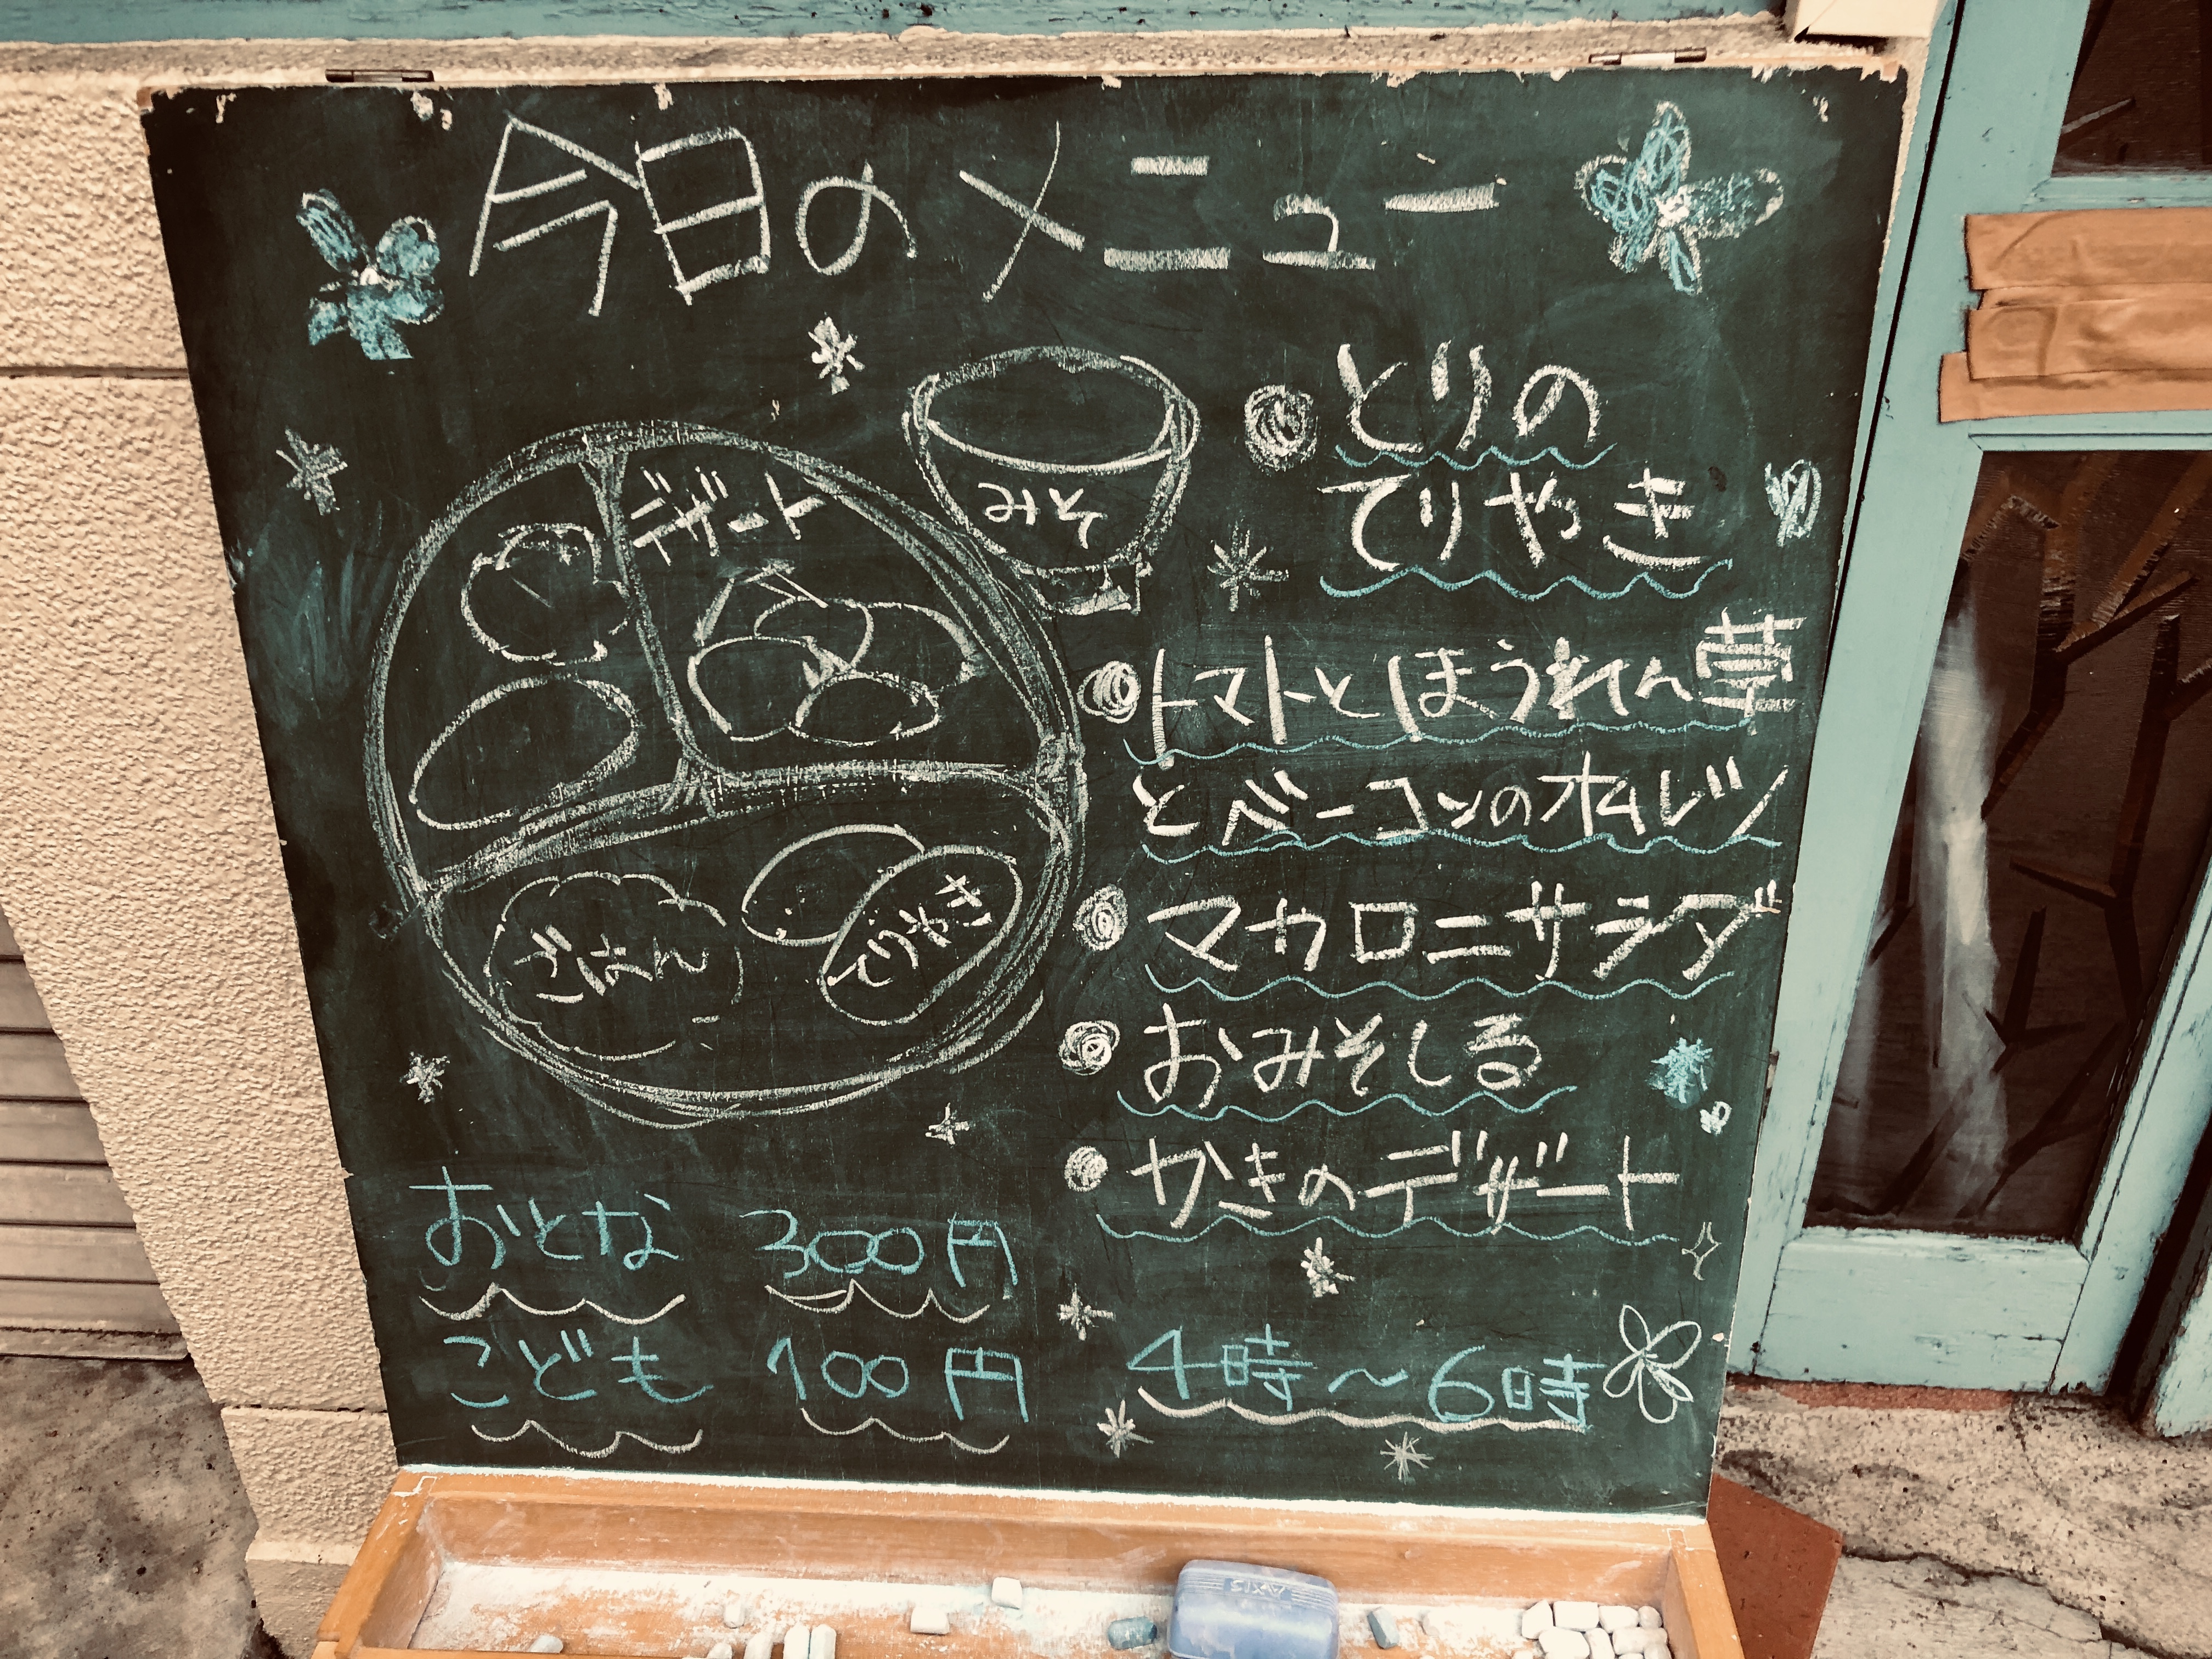 今日のメニュー
みそ
デザート
ごはん
てりやき
とりの
てりやき
トマトとほうれん草
とベーコンのオムレツ
マカロニサラダ
おみそしる
かきのデザート
おとな 300円
こども 100円
4時～6時
AXIS